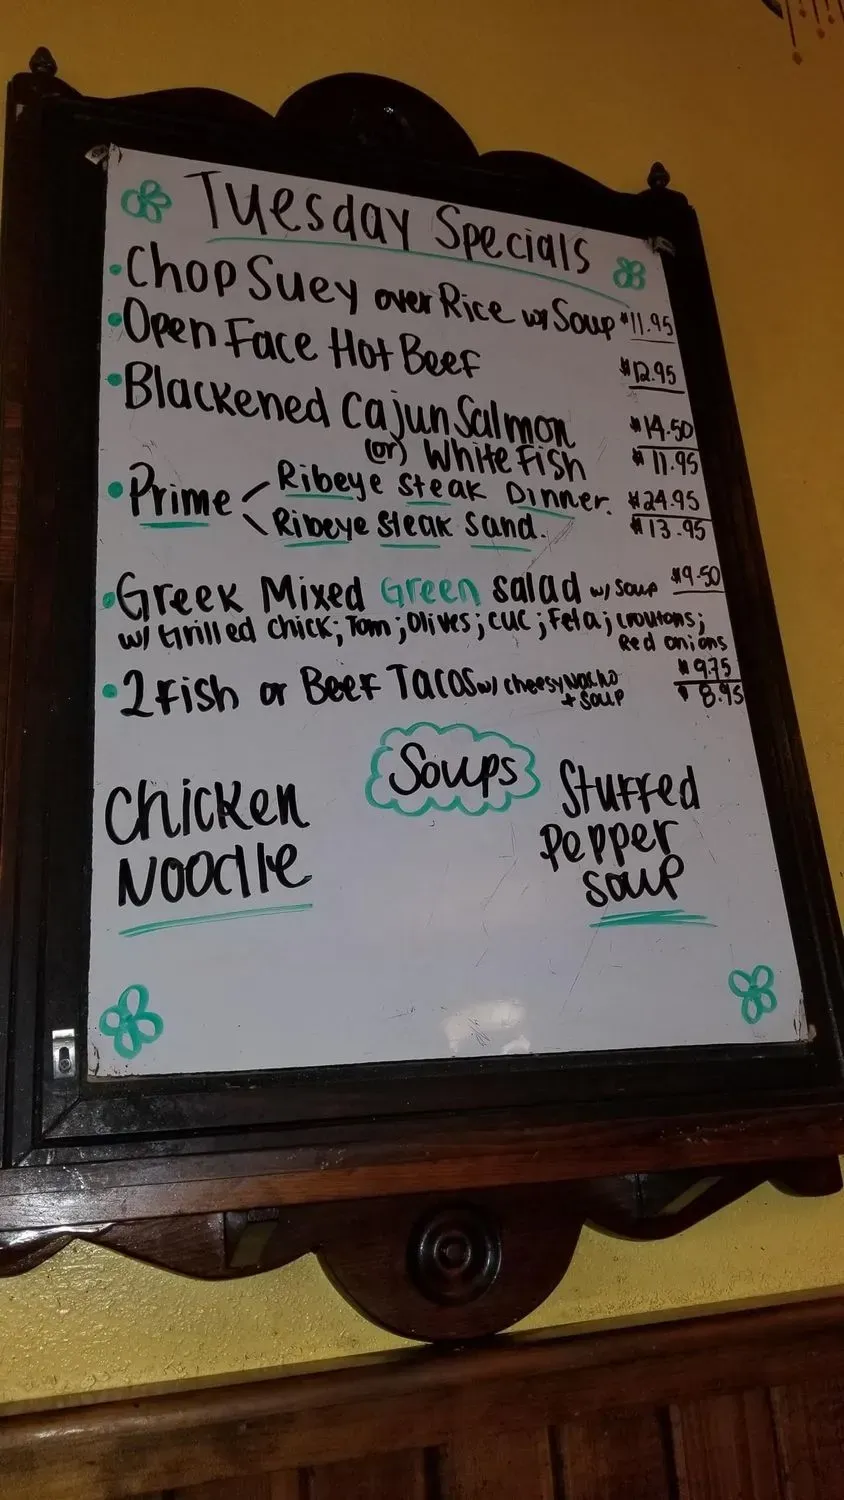 Tuesday Specials
• Chop Suey over Rice w/ Soup $11.95
• Open Face Hot Beef $12.95
• Blackened Cajun Salmon $14.50
(or) White Fish $11.95
• Prime < Ribeye Steak Dinner. $24.95
Ribeye Steak Sand. $13.95
• Greek Mixed Green Salad w/ Soup $9.50
w/ Grilled Chick; Tom; Olives; Cuc; Feta; Croutons;
Red onions
• 2 Fish or Beef Tacos w/ cheesy Nacho $9.75
+ soup $8.95
Soups
Chicken
Noodle
Stuffed
Pepper
Soup